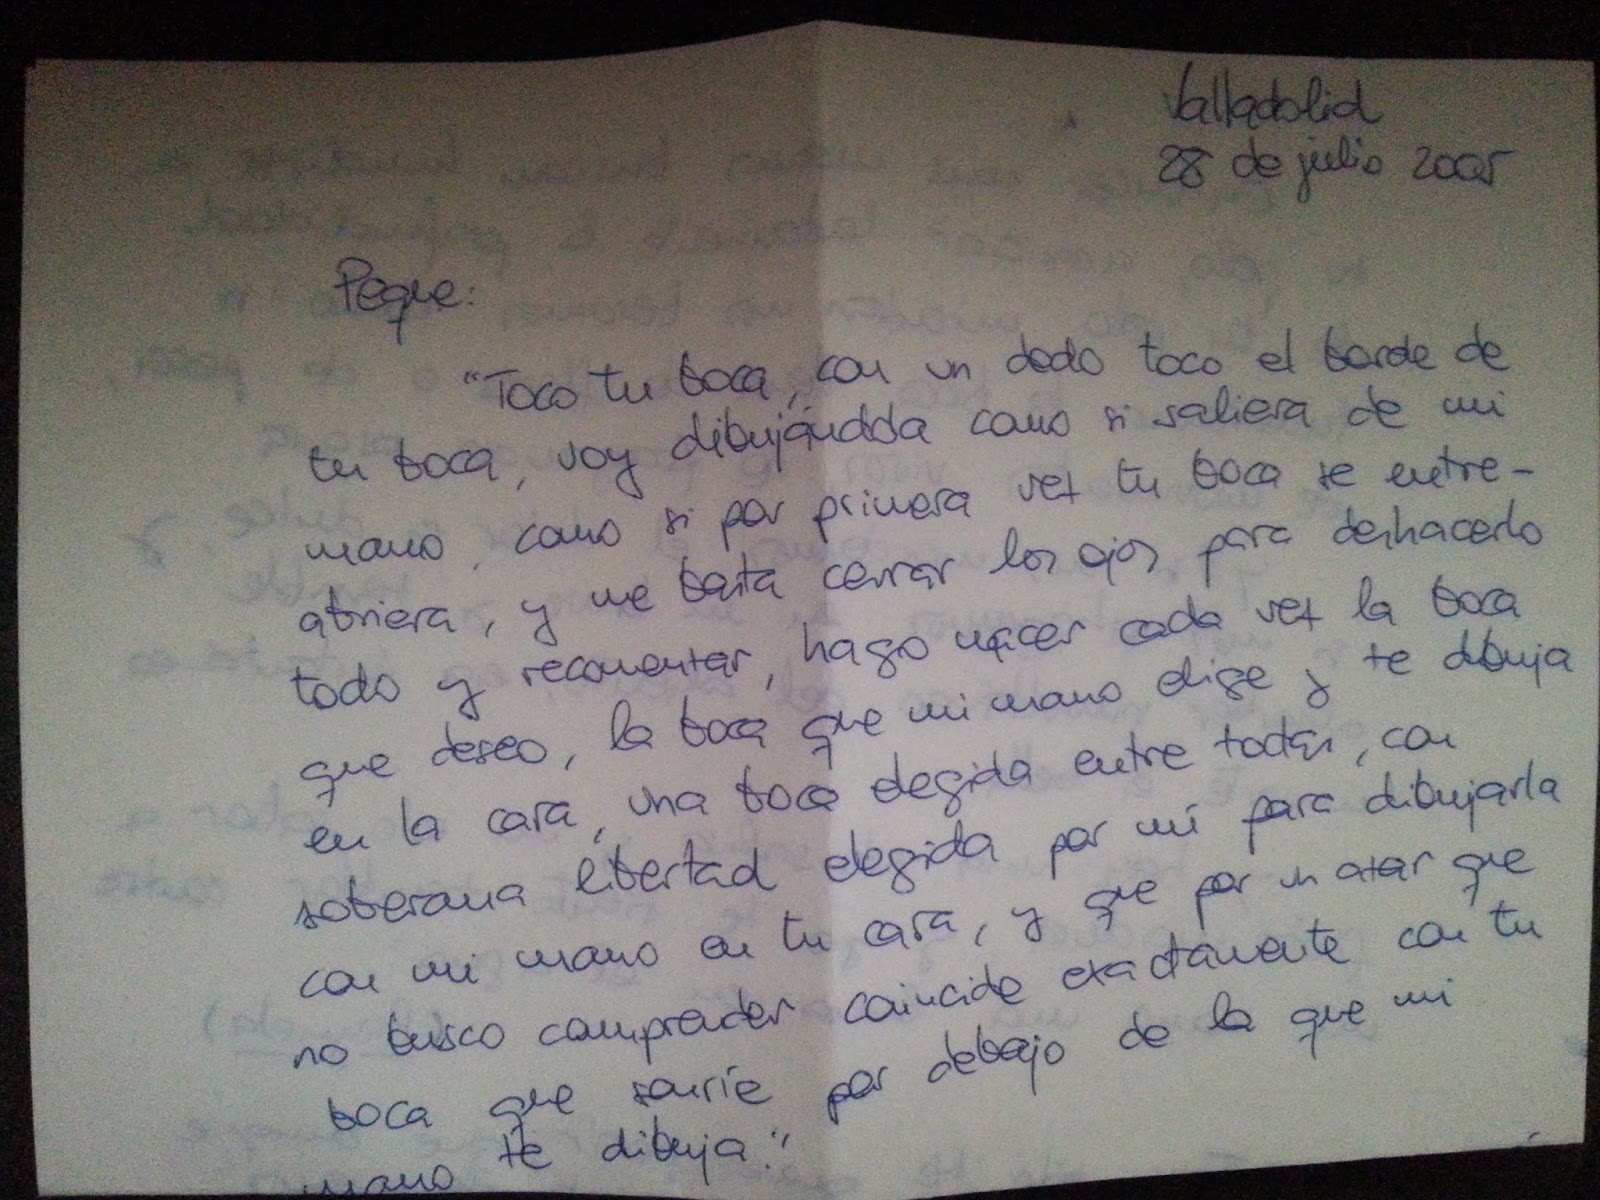 Valladolid
28 de julio 2005
Peque:
"Toco tu boca, con un dedo toco el borde de
tu boca, voy dibujándola como si saliera de mi
mano, como si por primera vez tu boca se entre-
abriera, y me basta cerrar los ojos para deshacerlo
todo y recomenzar, hago nacer cada vez la boca
que deseo, la boca que mi mano elige y te dibuja
en la cara, una boca elegida entre todas, con
soberana libertad elegida por mí para dibujarla
con mi mano en tu cara, y que por un azar que
no busco comprender coincide exactamente con tu
boca que sonríe por debajo de la que mi
mano te dibuja."